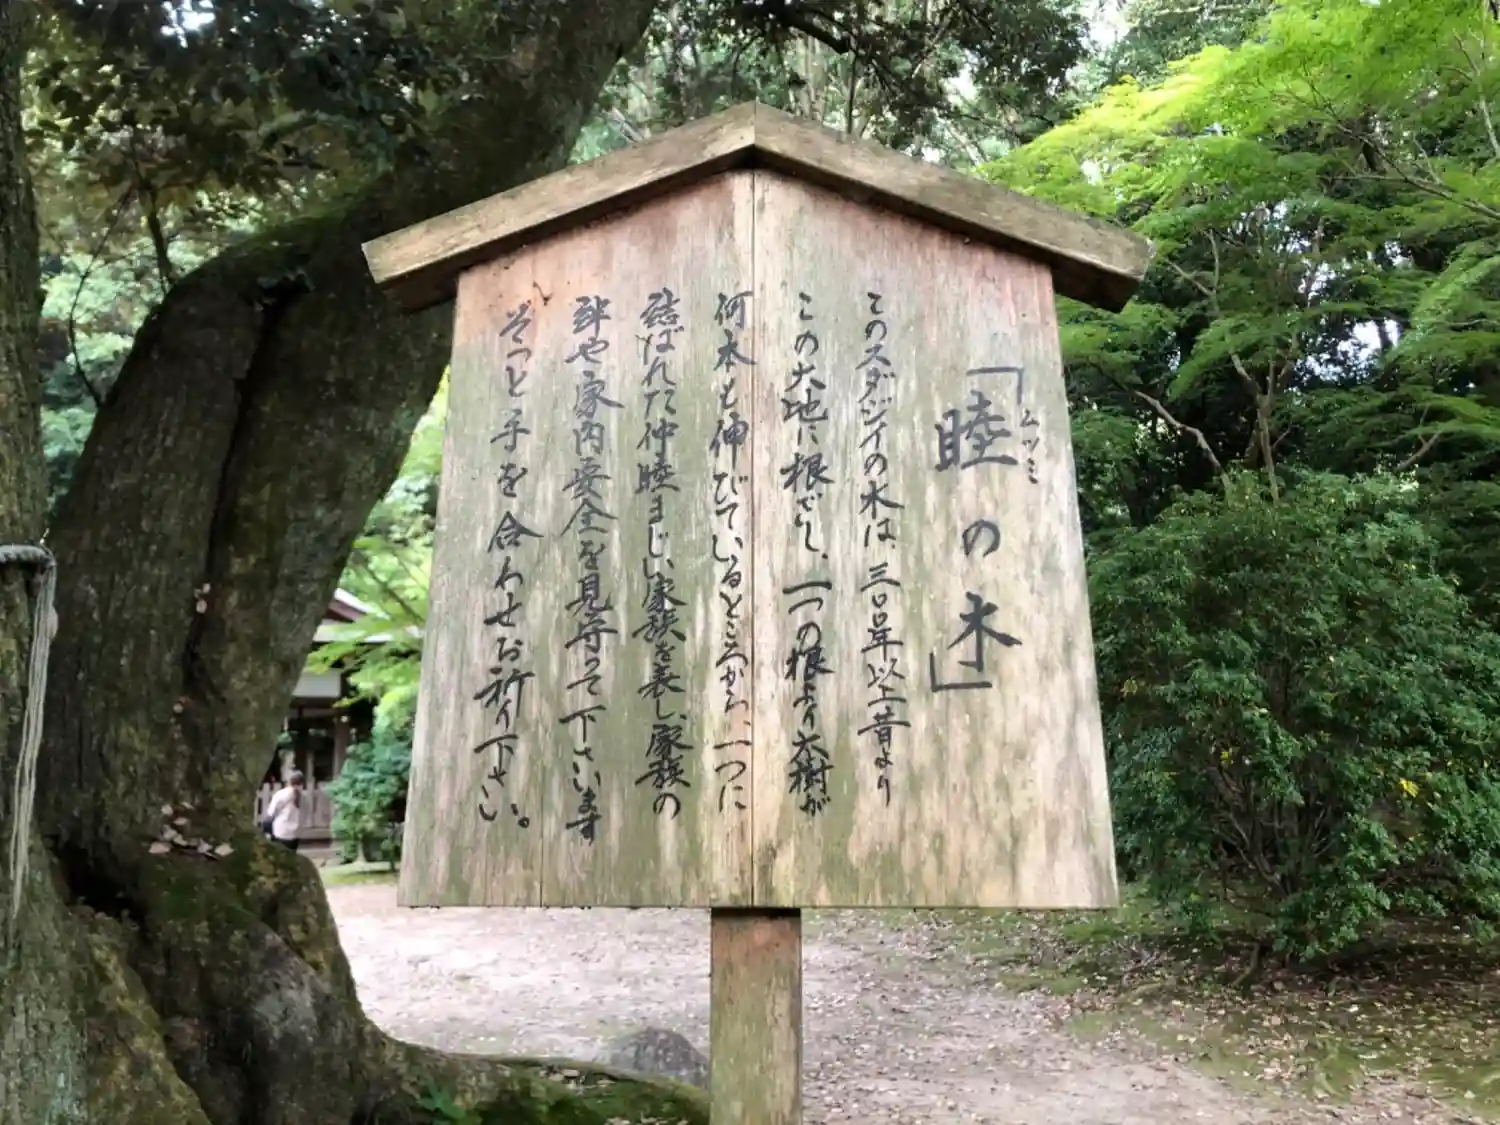 「睦の木」
ムツミ
このスダジイの木は、三〇〇年以上昔より
この大地に根ざし、一つの根より大樹が
何本も伸びているところから、一つに
結ばれた仲睦まじい家族を表し、家族の
絆や家内安全を見守って下さいます
そっと手を合わせお祈り下さい。